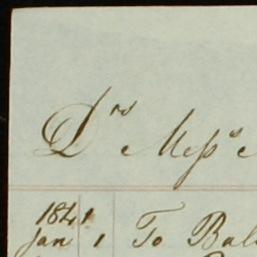 Drs Messrs
1841
Jan 1 To Bal